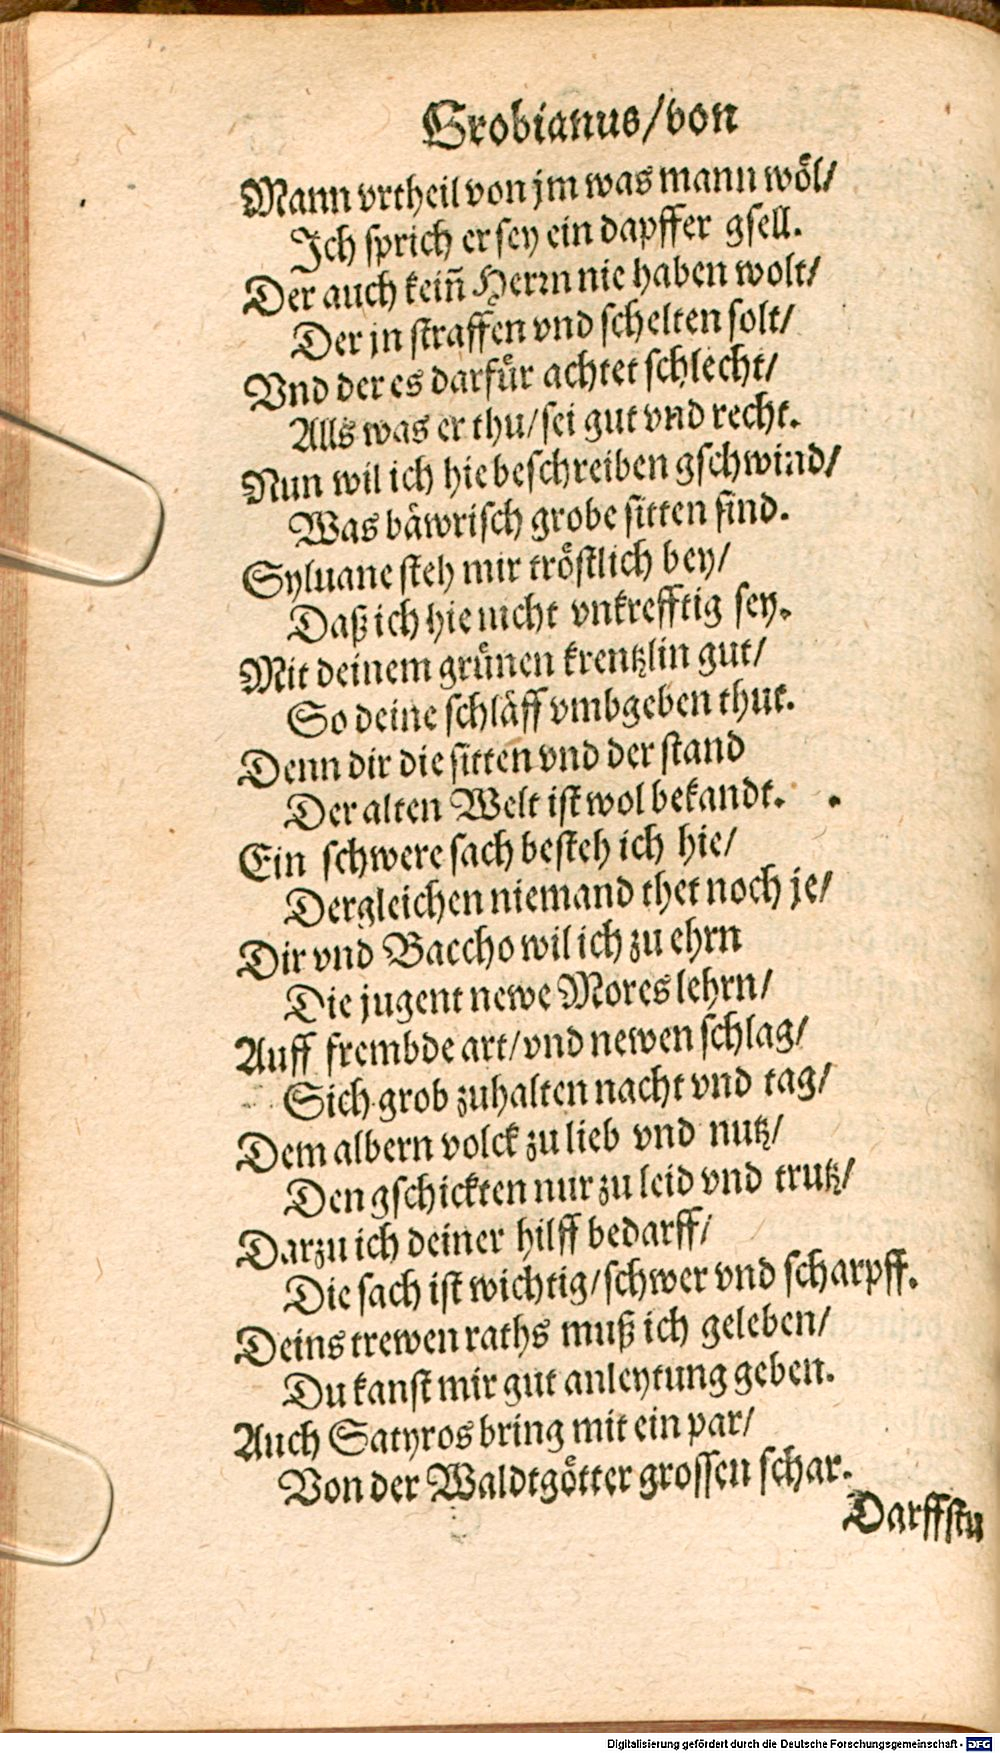 Grobianus/von
Mann vrtheil von jm was mann wöl/
Ich sprich er sey ein dapffer gsell.
Der auch keiñ Herrn nie haben wolt/
Der jn straffen vnd schelten solt/
Vnd der es darfür achtet schlecht/
Alls was er thu/sei gut vnd recht.
Nun wil ich hie beschreiben gschwind/
Was bäwrisch grobe sitten sind.
Syluane steh mir tröstlich bey/
Daß ich hie nicht vnkrefftig sey.
Mit deinem grünen krentzlin gut/
So deine schläff vmbgeben thut.
Denn dir die sitten vnd der stand
Der alten Welt ist wol bekandt.
Ein schwere sach besteh ich hie/
Dergleichen niemand thet noch je/
Dir vnd Baccho wil ich zu ehrn
Die jugent newe Mores lehrn/
Auff frembde art/vnd newen schlag/
Sich grob zuhalten nacht vnd tag/
Dem albern volck zu lieb vnd nutz/
Den gschickten nur zu leid vnd trutz/
Darzu ich deiner hilff bedarff/
Die sach ist wichtig/schwer vnd scharpff.
Deins trewen raths muß ich geleben/
Du kanst mir gut anleytung geben.
Auch Satyros bring mit ein par/
Von der Waldtgötter grossen schar.
Darffstu
Digitalisierung gefördert durch die Deutsche Forschungsgemeinschaft - DFG